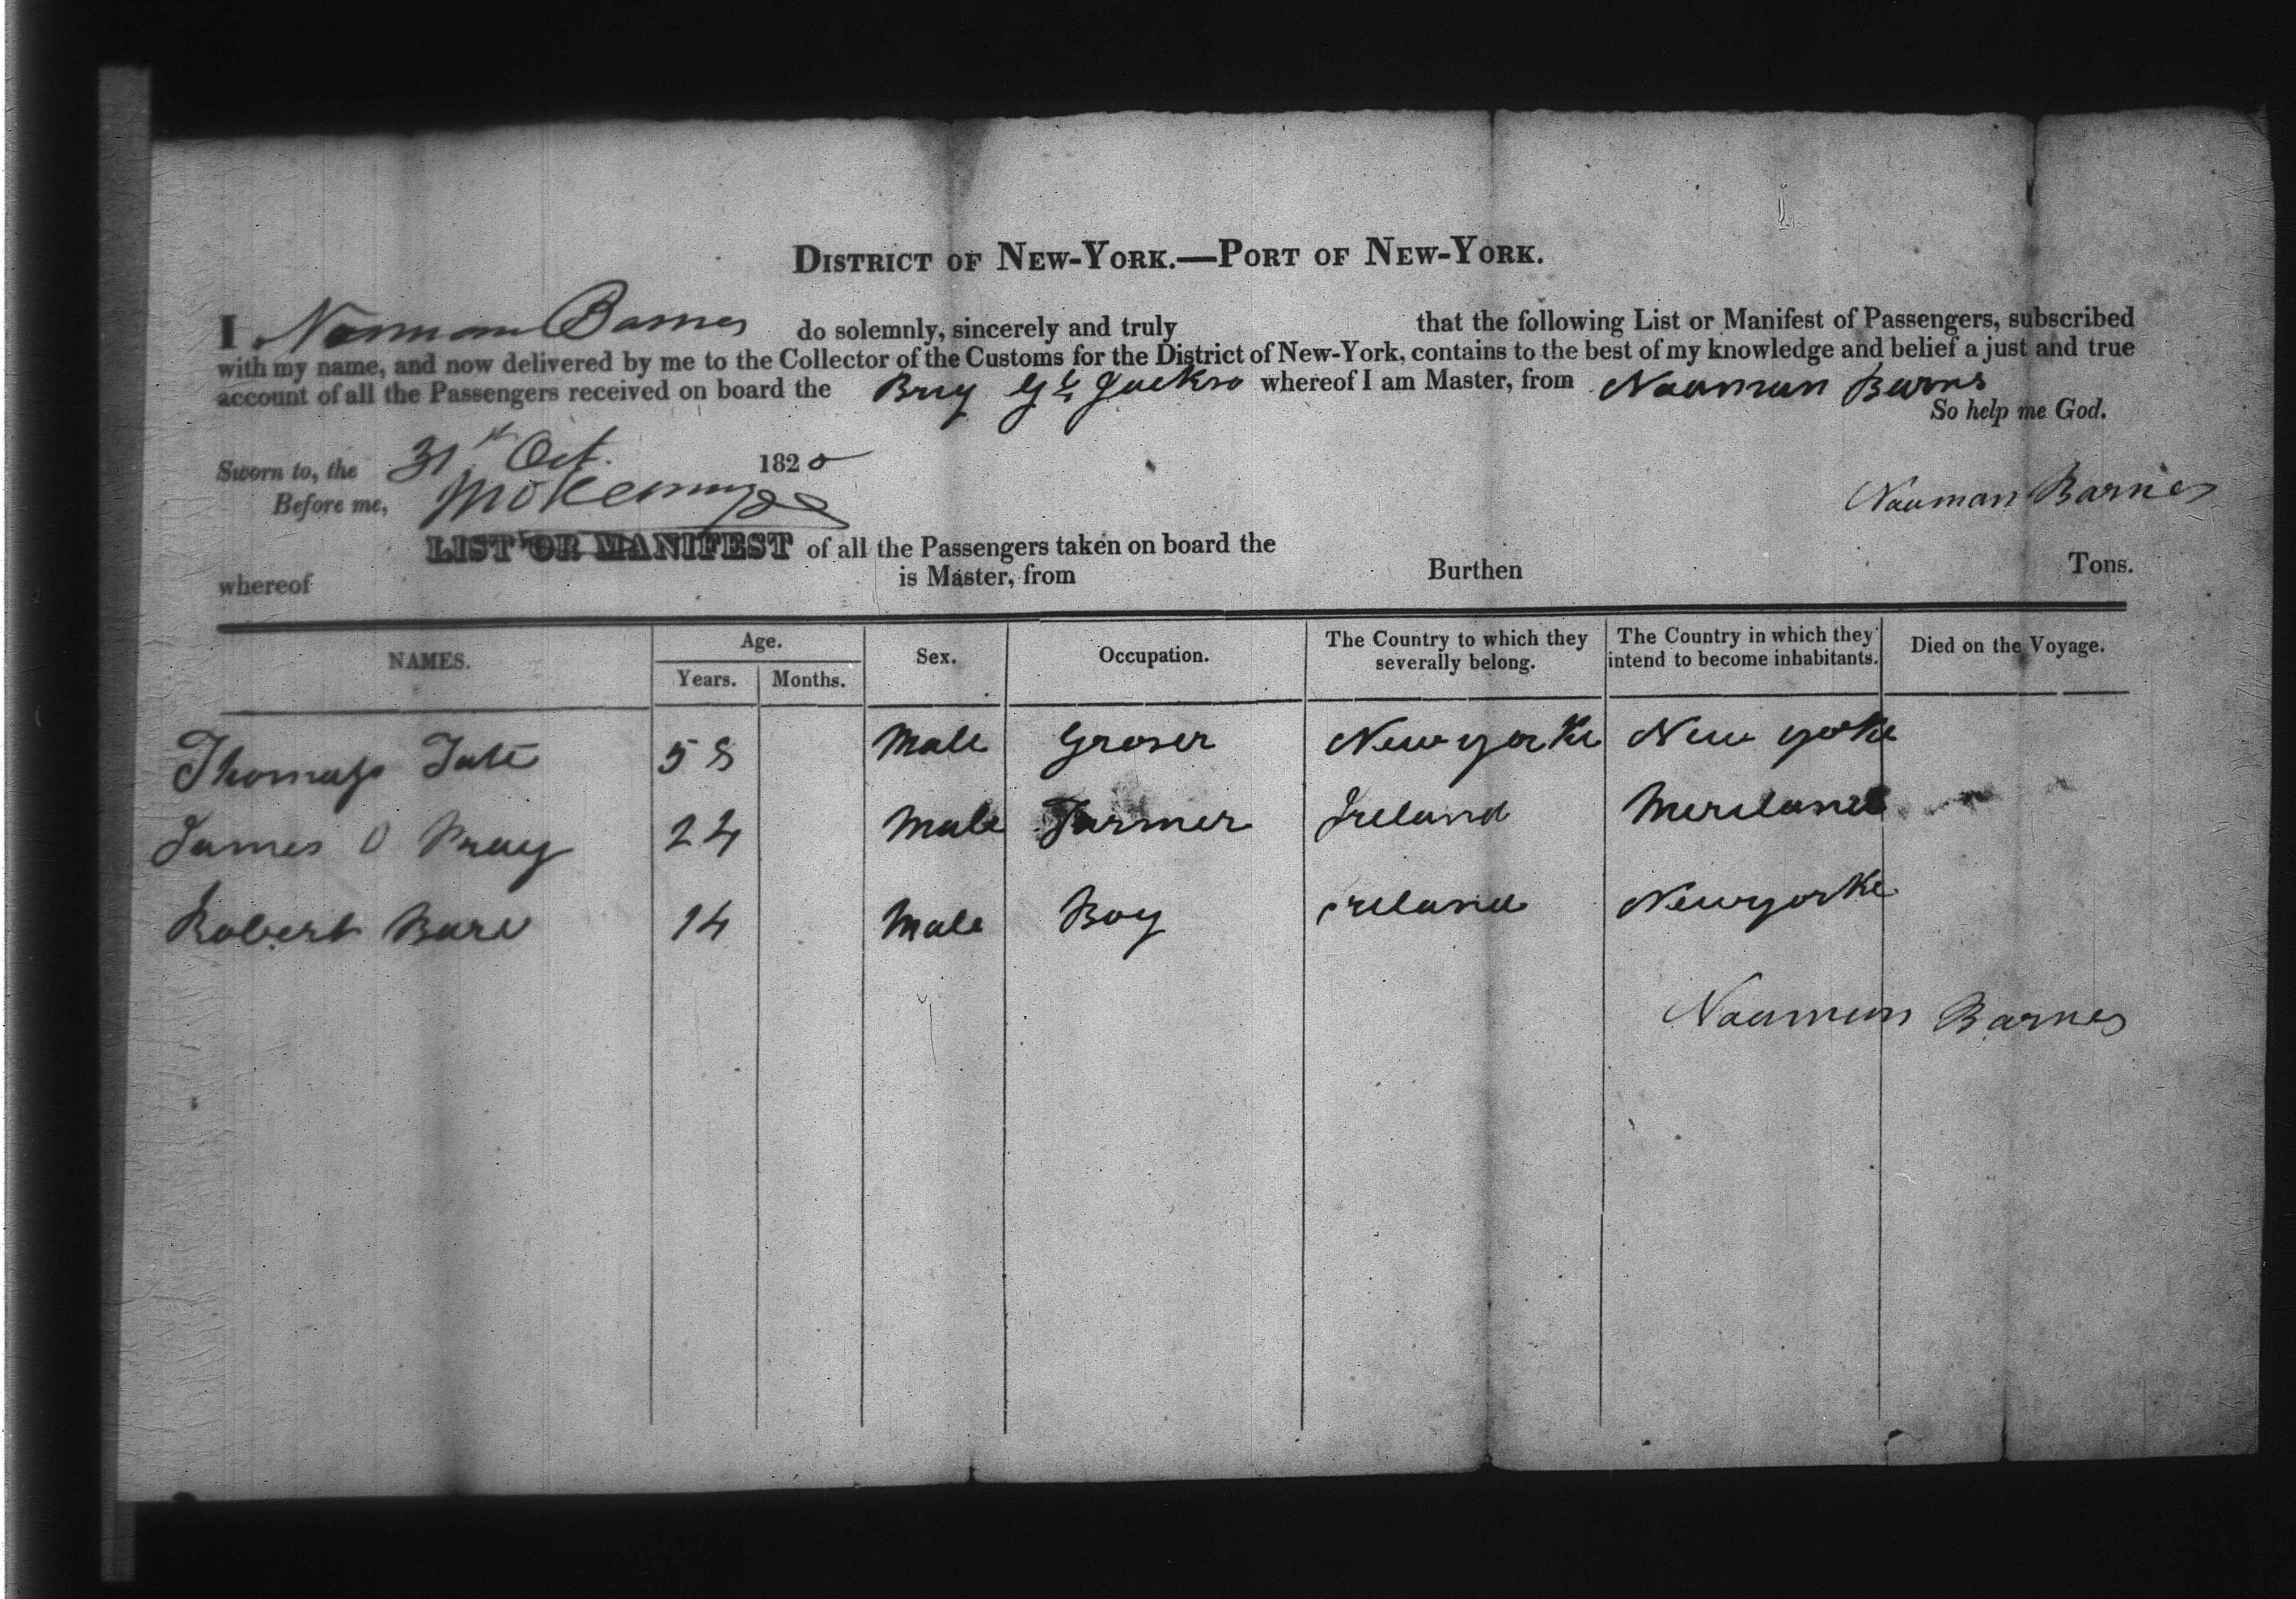 DISTRICT OF NEW-YORK.—PORT OF NEW-YORK.
I Naaman Barnes do solemnly, sincerely and truly that the following List or Manifest of Passengers, subscribed
with my name, and now delivered by me to the Collector of the Customs for the District of New-York, contains to the best of my knowledge and belief a just and true
account of all the Passengers received on board the Brig Gl Jackso whereof I am Master, from Naaman Barns
So help me God.
Sworn to, the 31st Oct. 1820
Before me,
Naaman Barnes
LIST OR MANIFEST of all the Passengers taken on board the
whereof is Master, from Burthen Tons.
NAMES. Age. Years. Months. Sex. Occupation. The Country to which they severally belong. The Country in which they intend to become inhabitants. Died on the Voyage.
Thomas Tate 58 Male Groser Newyorke New yorke
James O Bray 24 Male Farmer Ireland Mereland
Robert Bare 14 Male Boy Ireland Newyorke
Naaman Barnes